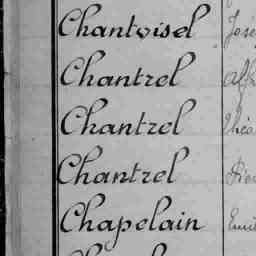 Chantoisel José
Chantrel Alfr
Chantrel Théo
Chantrel Pier
Chapelain Emil